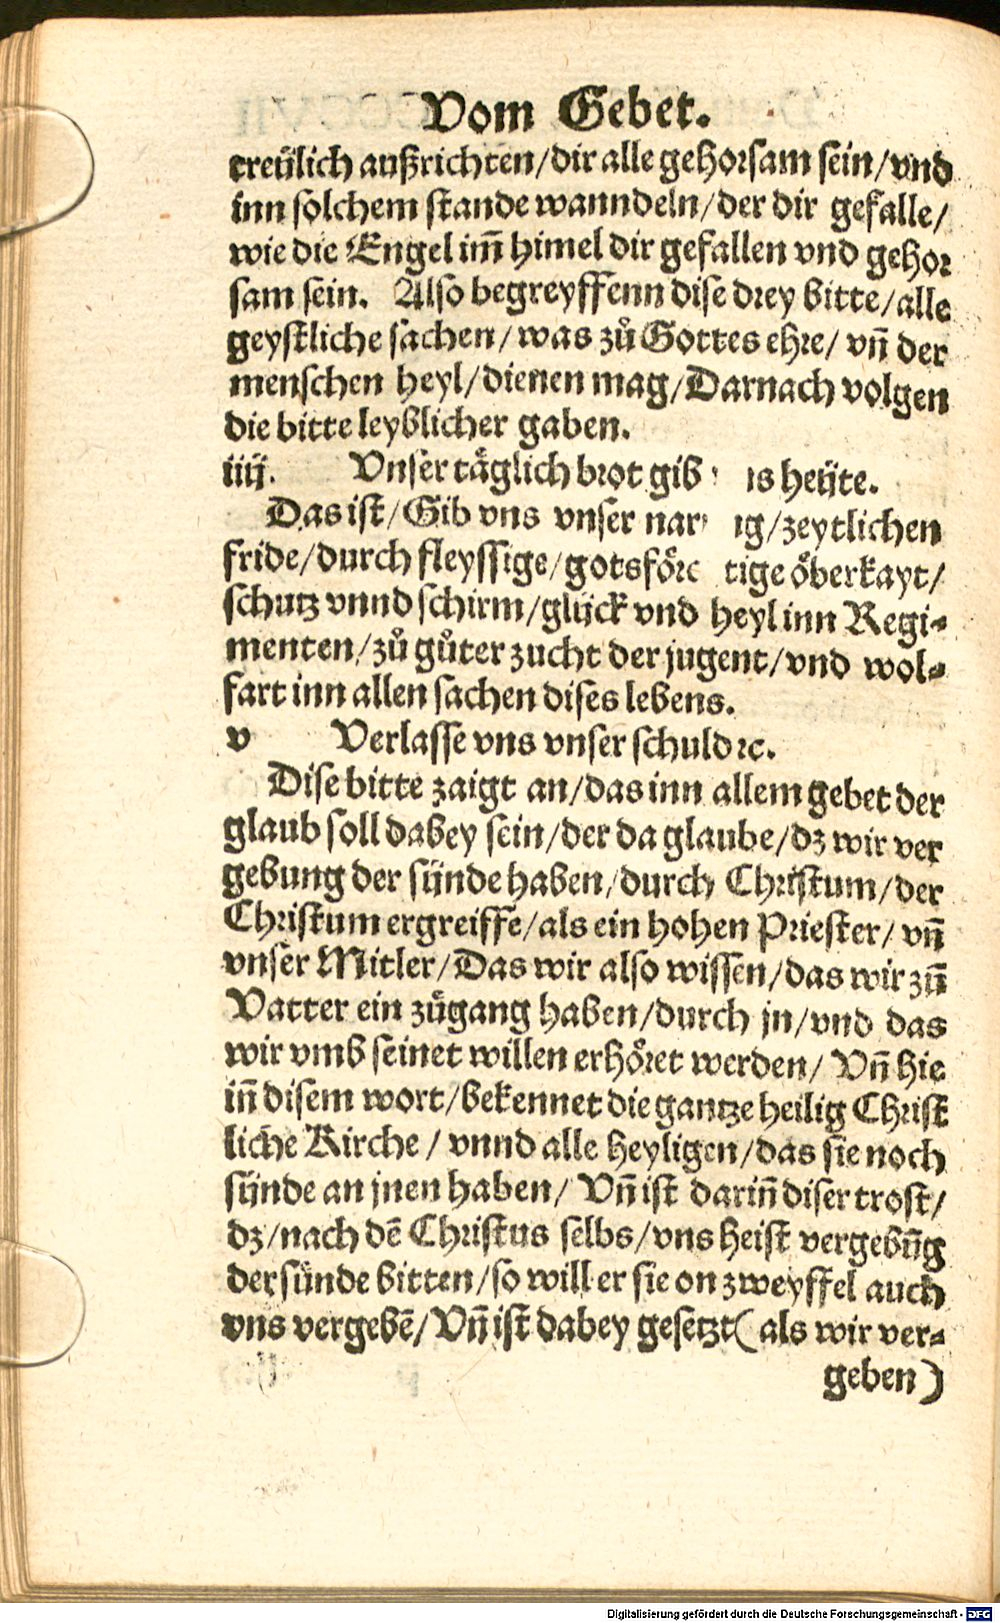 Vom Gebet.
treülich außrichten/dir alle gehorsam sein/vnd
inn solchem stande wanndeln/der dir gefalle/
wie die Engel im̃ himel dir gefallen vnd gehor
sam sein. Also begreyffenn dise drey bitte/alle
geystliche sachen/was zů Gottes ehre/vñ der
menschen heyl/dienen mag/Darnach volgen
die bitte leyblicher gaben.
iiij. Vnser täglich brot gib heüte.
Das ist/Gib vns vnser zeytlichen
fride/durch fleyssige/ öberkayt/
schutz vnnd schirm/glück vnd heyl inn Regi-
menten/zů gůter zucht der jugent/vnd wol-
fart inn allen sachen dises lebens.
v Verlasse vns vnser schuld ꝛc.
Dise bitte zaigt an/das inn allem gebet der
glaub soll dabey sein/der da glaube/dz wir ver
gebung der sünde haben/durch Christum/der
Christum ergreiffe/als ein hohen Priester/vñ
vnser Mitler/Das wir also wissen/das wir zũ
Vatter ein zůgang haben/durch jn/vnd das
wir vmb seinet willen erhöret werden/Vñ hie
iñ disem wort/bekennet die gantze heilig Christ
liche Kirche/vnnd alle heyligen/das sie noch
sünde an jnen haben/Vñ ist dariñ diser trost/
dz/nach dē Christus selbs/vns heist vergebũg
der sünde bitten/so will er sie on zweyffel auch
vns vergebē/Vñ ist dabey gesetzt(als wir ver-
geben)
Digitalisierung gefördert durch die Deutsche Forschungsgemeinschaft - DFG